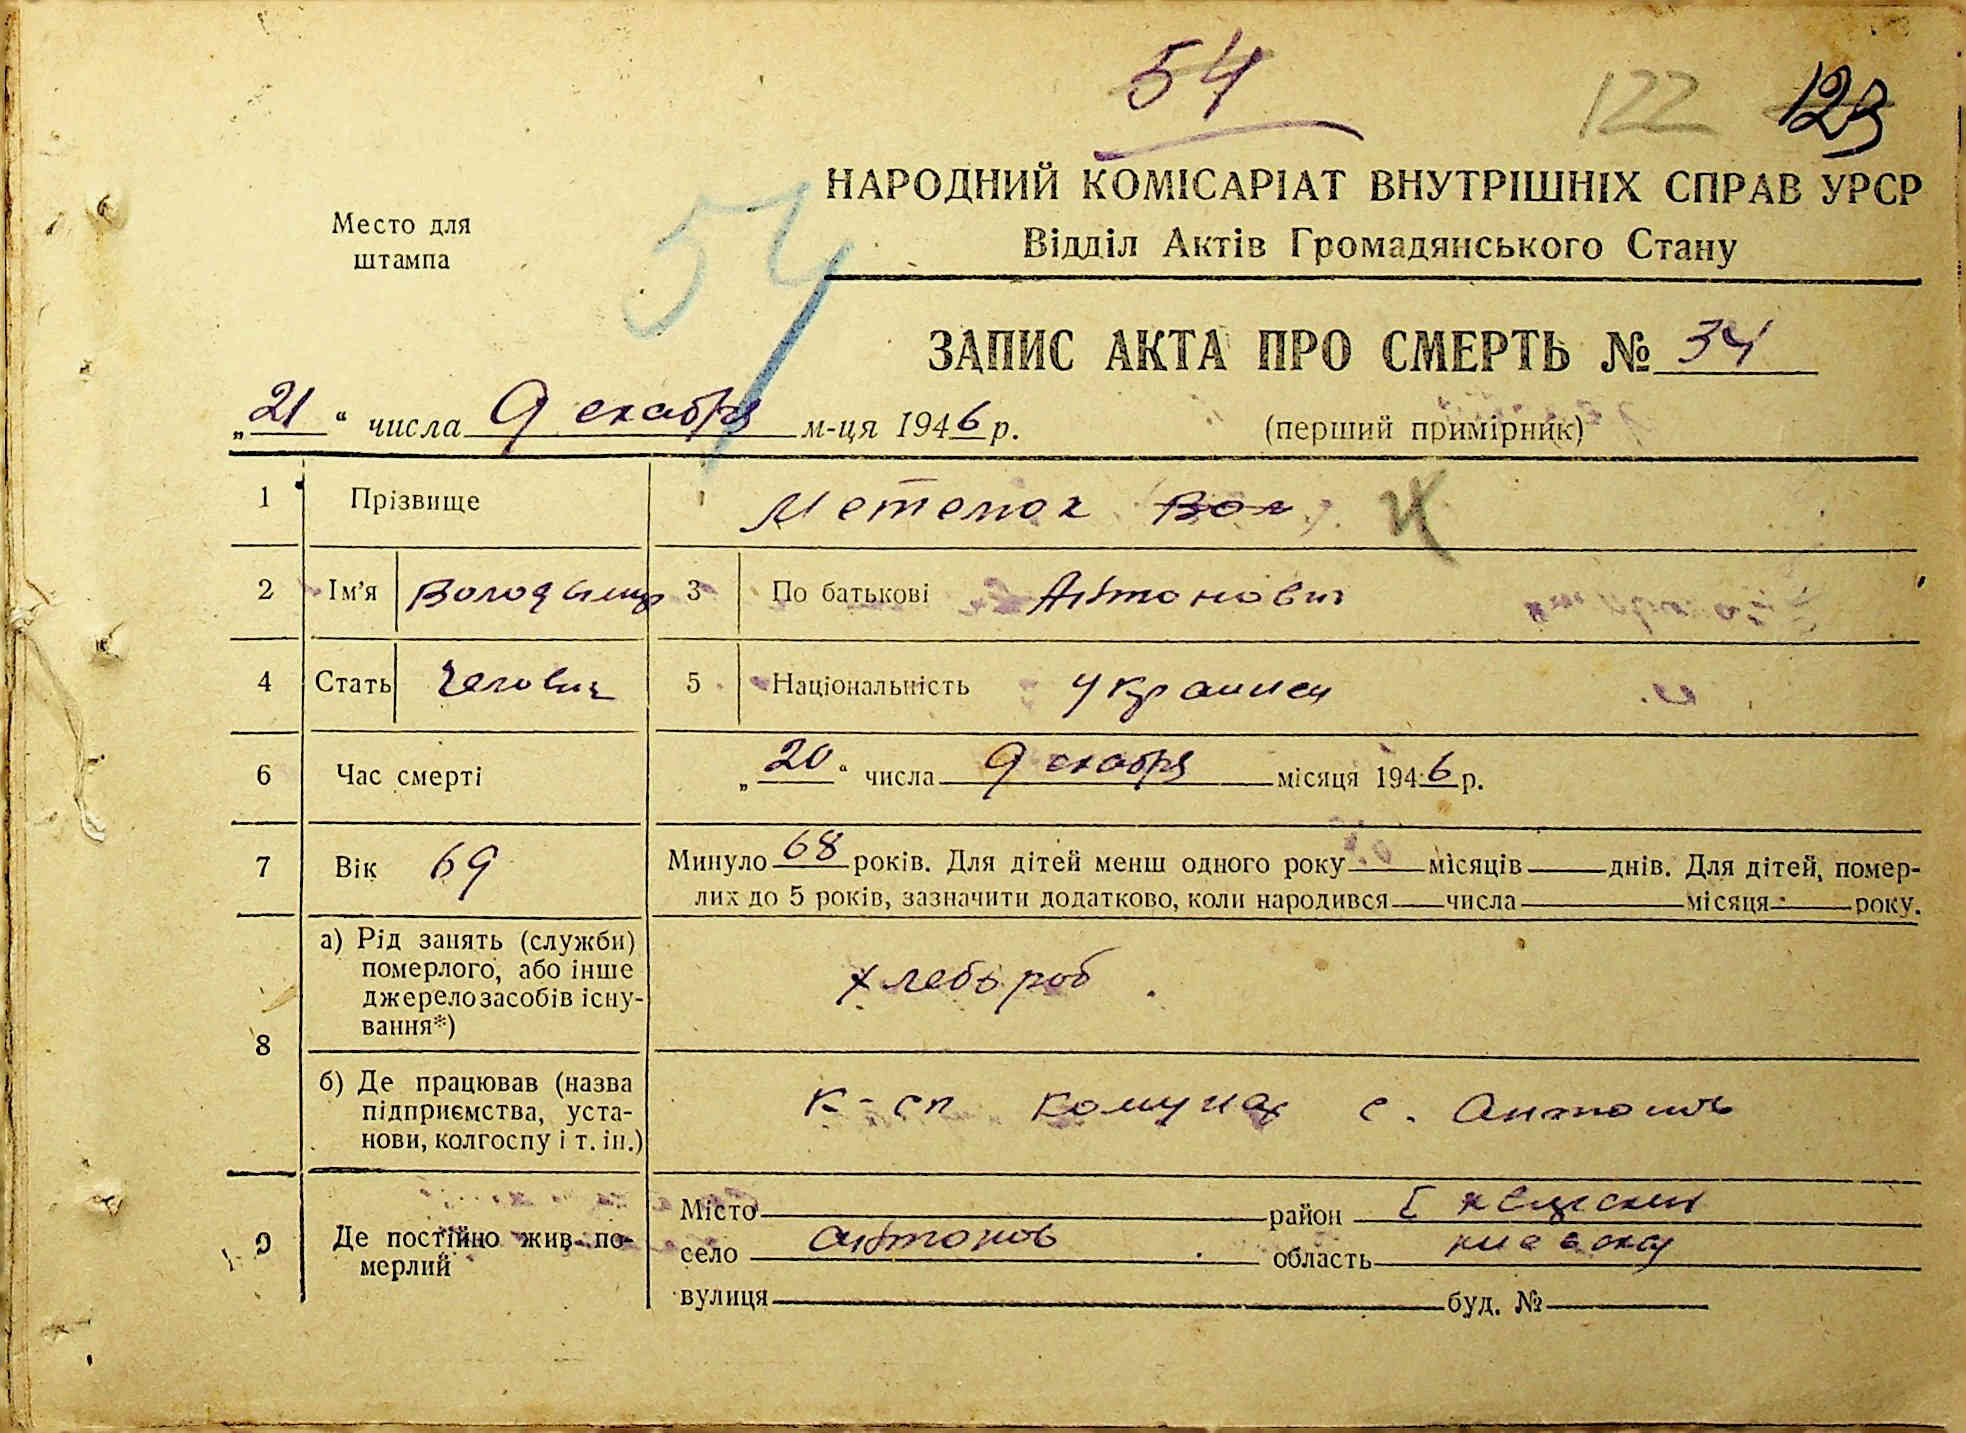 54
122 123
НАРОДНИЙ КОМІСАРІАТ ВНУТРІШНІХ СПРАВ УРСР
Відділ Актів Громадянського Стану
Место для
штампа
54
ЗАПИС АКТА ПРО СМЕРТЬ № 34
„21“ числа Декабря м-ця 1946 р.
(перший примірник)
1 Прізвище Метелюк
2 Ім’я Володымир 3 По батькові Антонович
4 Стать Человик 5 Національність Украинец
6 Час смерті „20“ числа Декабря місяця 1946 р.
7 Вік 69 Минуло 68 років. Для дітей менш одного року місяців днів. Для дітей, помер-
лих до 5 років, зазначити додатково, коли народився числа місяця року.
8 а) Рід занять (служби)
померлого, або інше
джерело засобів існу-
вання*)
хлебороб
б) Де працював (назва
підприємства, уста-
нови, колгоспу і т. ін.)
к-сп Комунар с. Антонов
9 Де постійно жив по-
мерлий
Місто район
село Антонов область Киевская
вулиця буд. №